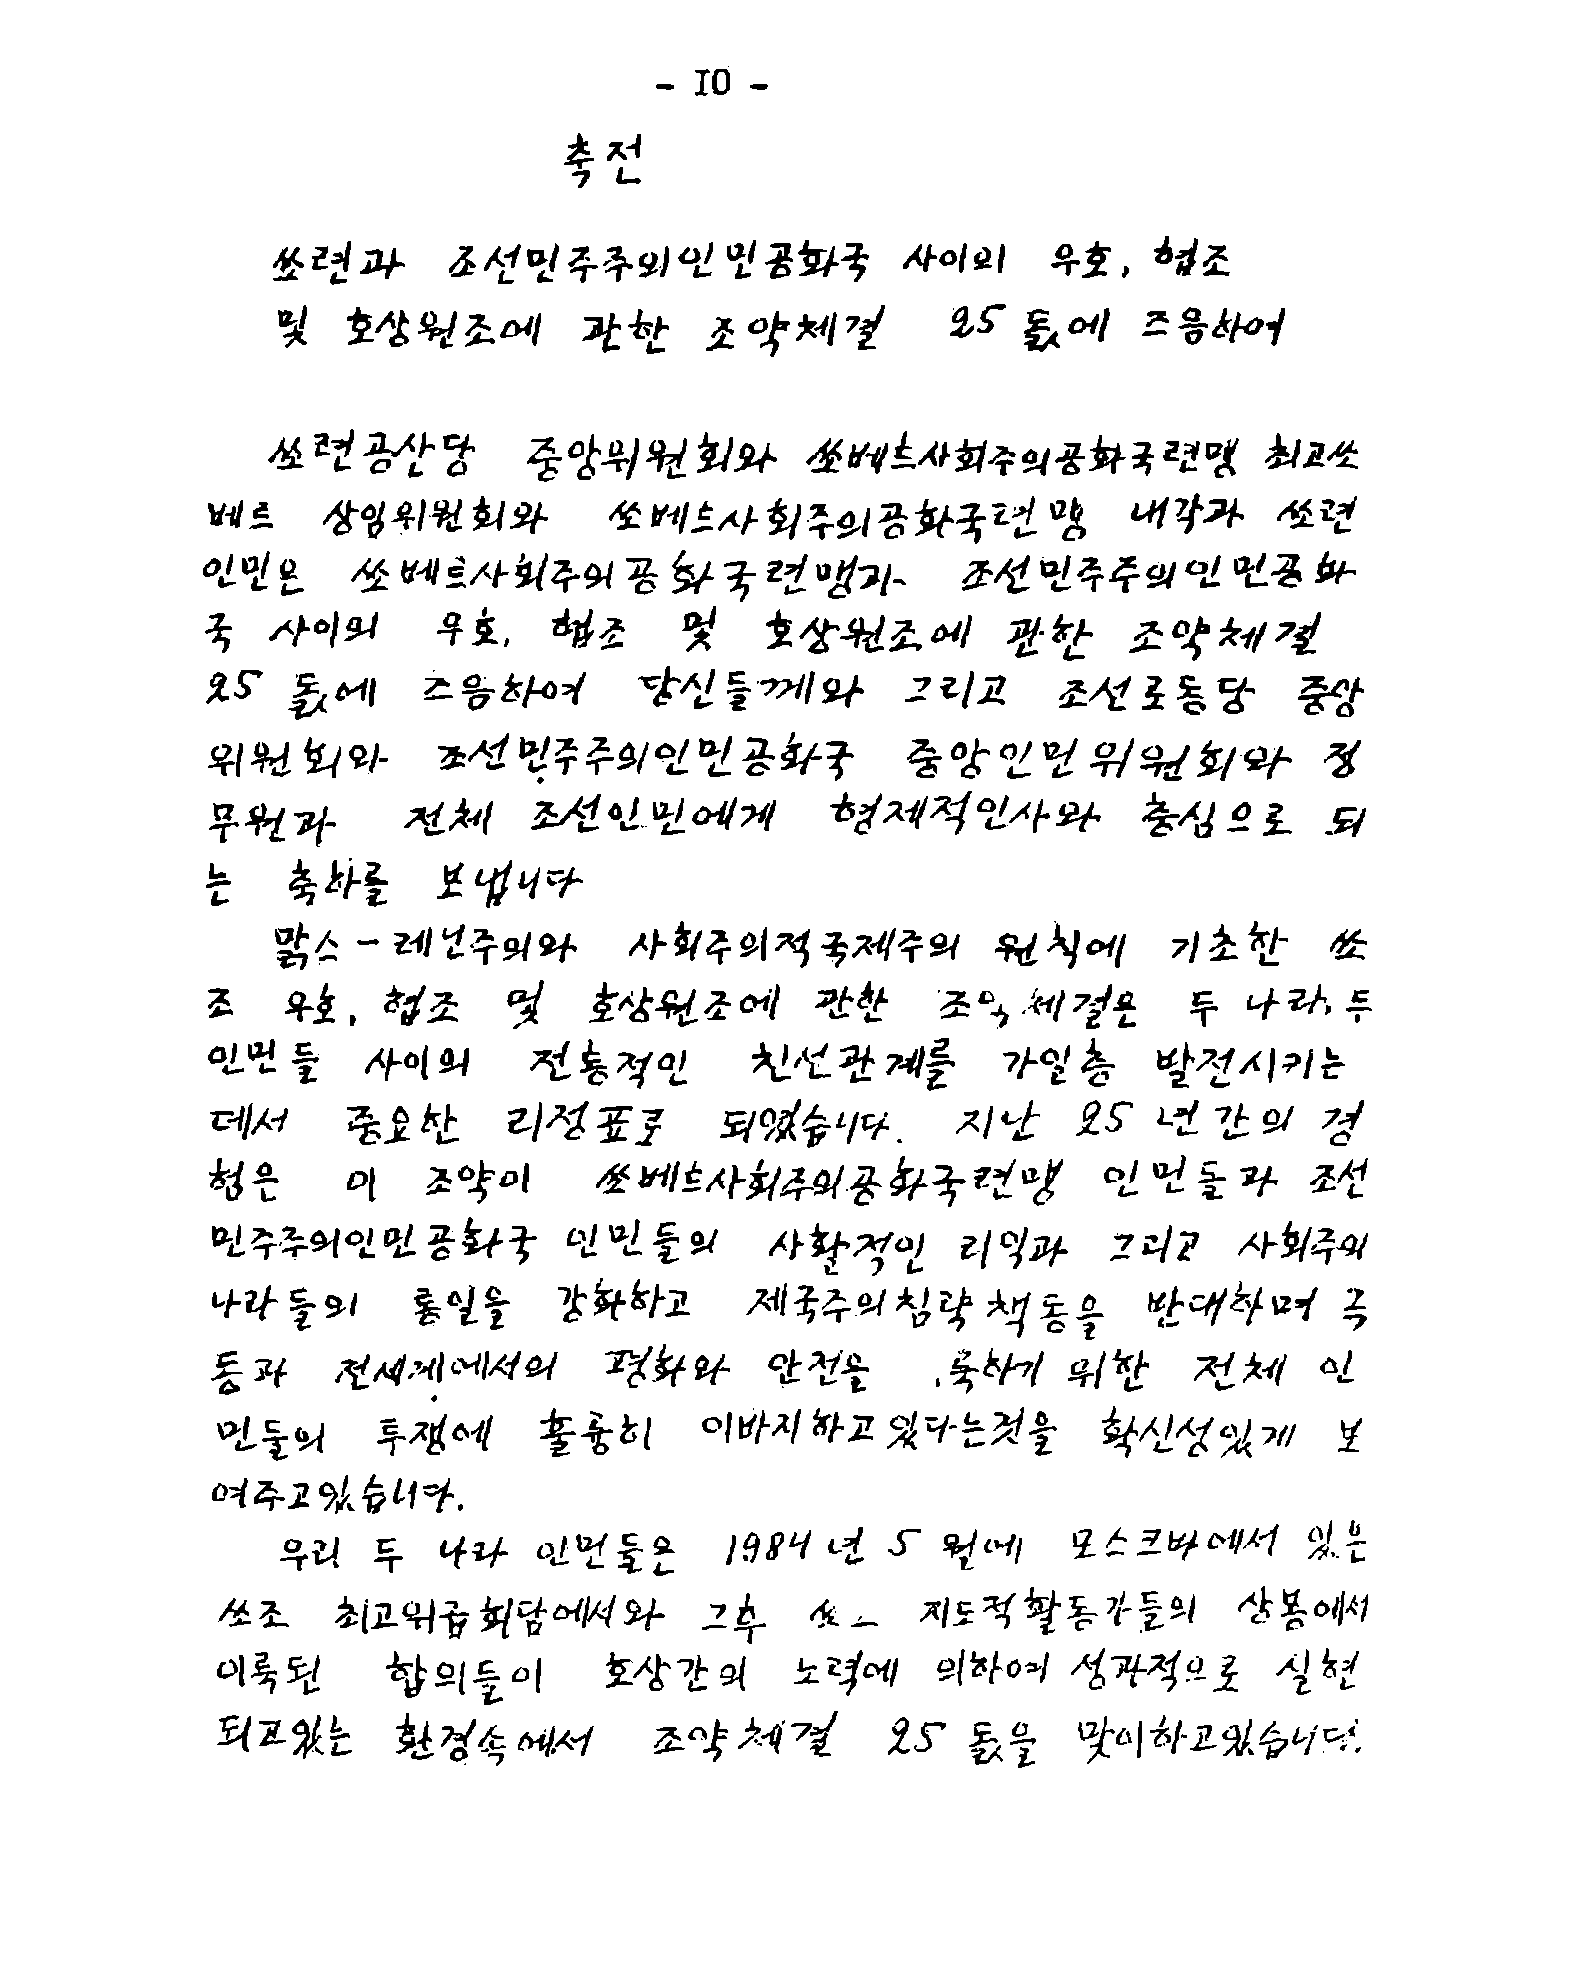 - 10 -
축전
쏘련과 조선민주주의인민공화국 사이의 우호, 협조
및 호상원조에 관한 조약체결 25 돐에 즈음하여
쏘련공산당 중앙위원회와 쏘베트사회주의공화국련맹 최고쏘
베트 상임위원회와 쏘베트사회주의공화국련맹 내각과 쏘련
인민은 쏘베트사회주의공화국련맹과 조선민주주의인민공화
국 사이의 우호, 협조 및 호상원조에 관한 조약체결
25 돐에 즈음하여 당신들께와 그리고 조선로동당 중앙
위원회와 조선민주주의인민공화국 중앙인민위원회와 정
무원과 전체 조선인민에게 형제적인사와 충심으로 되
는 축하를 보냅니다
맑스-레닌주의와 사회주의적국제주의 원칙에 기초한 쏘
조 우호, 협조 및 호상원조에 관한 조약체결은 두 나라, 두
인민들 사이의 전통적인 친선관계를 가일층 발전시키는
데서 중요한 리정표로 되였습니다. 지난 25 년간의 경
험은 이 조약이 쏘베트사회주의공화국련맹 인민들과 조선
민주주의인민공화국 인민들의 사활적인 리익과 그리고 사회주의
나라들의 통일을 강화하고 제국주의침략책동을 반대하며 극
동과 전세계에서의 평화와 안전을 위한 전체 인
민들의 투쟁에 훌륭히 이바지하고있다는것을 확신성있게 보
여주고있습니다.
우리 두 나라 인민들은 1984 년 5 월에 모스크바에서 있은
쏘조 최고위급회담에서와 그후 지도적활동가들의 상봉에서
이룩된 합의들이 호상간의 노력에 의하여 성과적으로 실현
되고있는 환경속에서 조약체결 25 돐을 맞이하고있습니다.